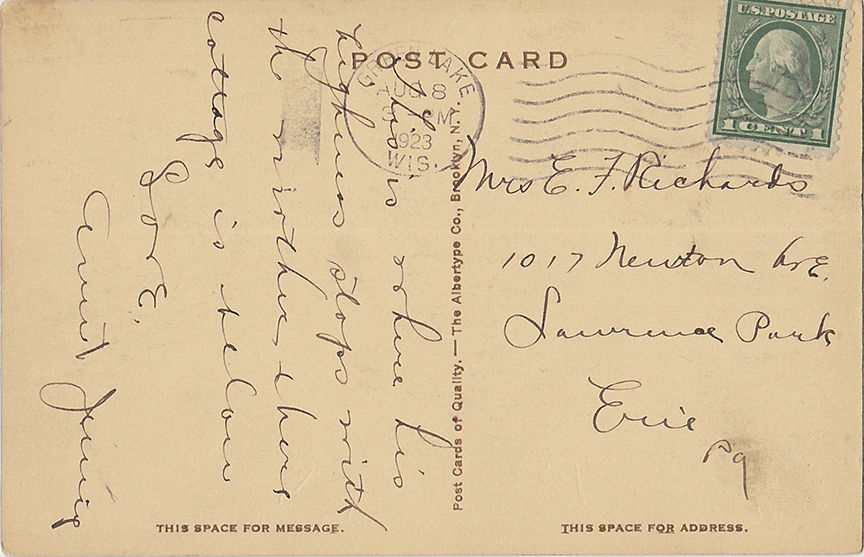 POST CARD
U.S. POSTAGE
1 CENT 1
GREEN LAKE
AUG 8
PM
1923
WIS.
This is where his
highness stops with
the mother, their
cottage is below
Love.
Aunt Jennie
Post Cards of Quality. — The Albertype Co., Brooklyn, N.Y.
Mrs E. F. Richards
1017 Newton Ave.
Lawrence Park
Erie
Pa
THIS SPACE FOR MESSAGE.
THIS SPACE FOR ADDRESS.